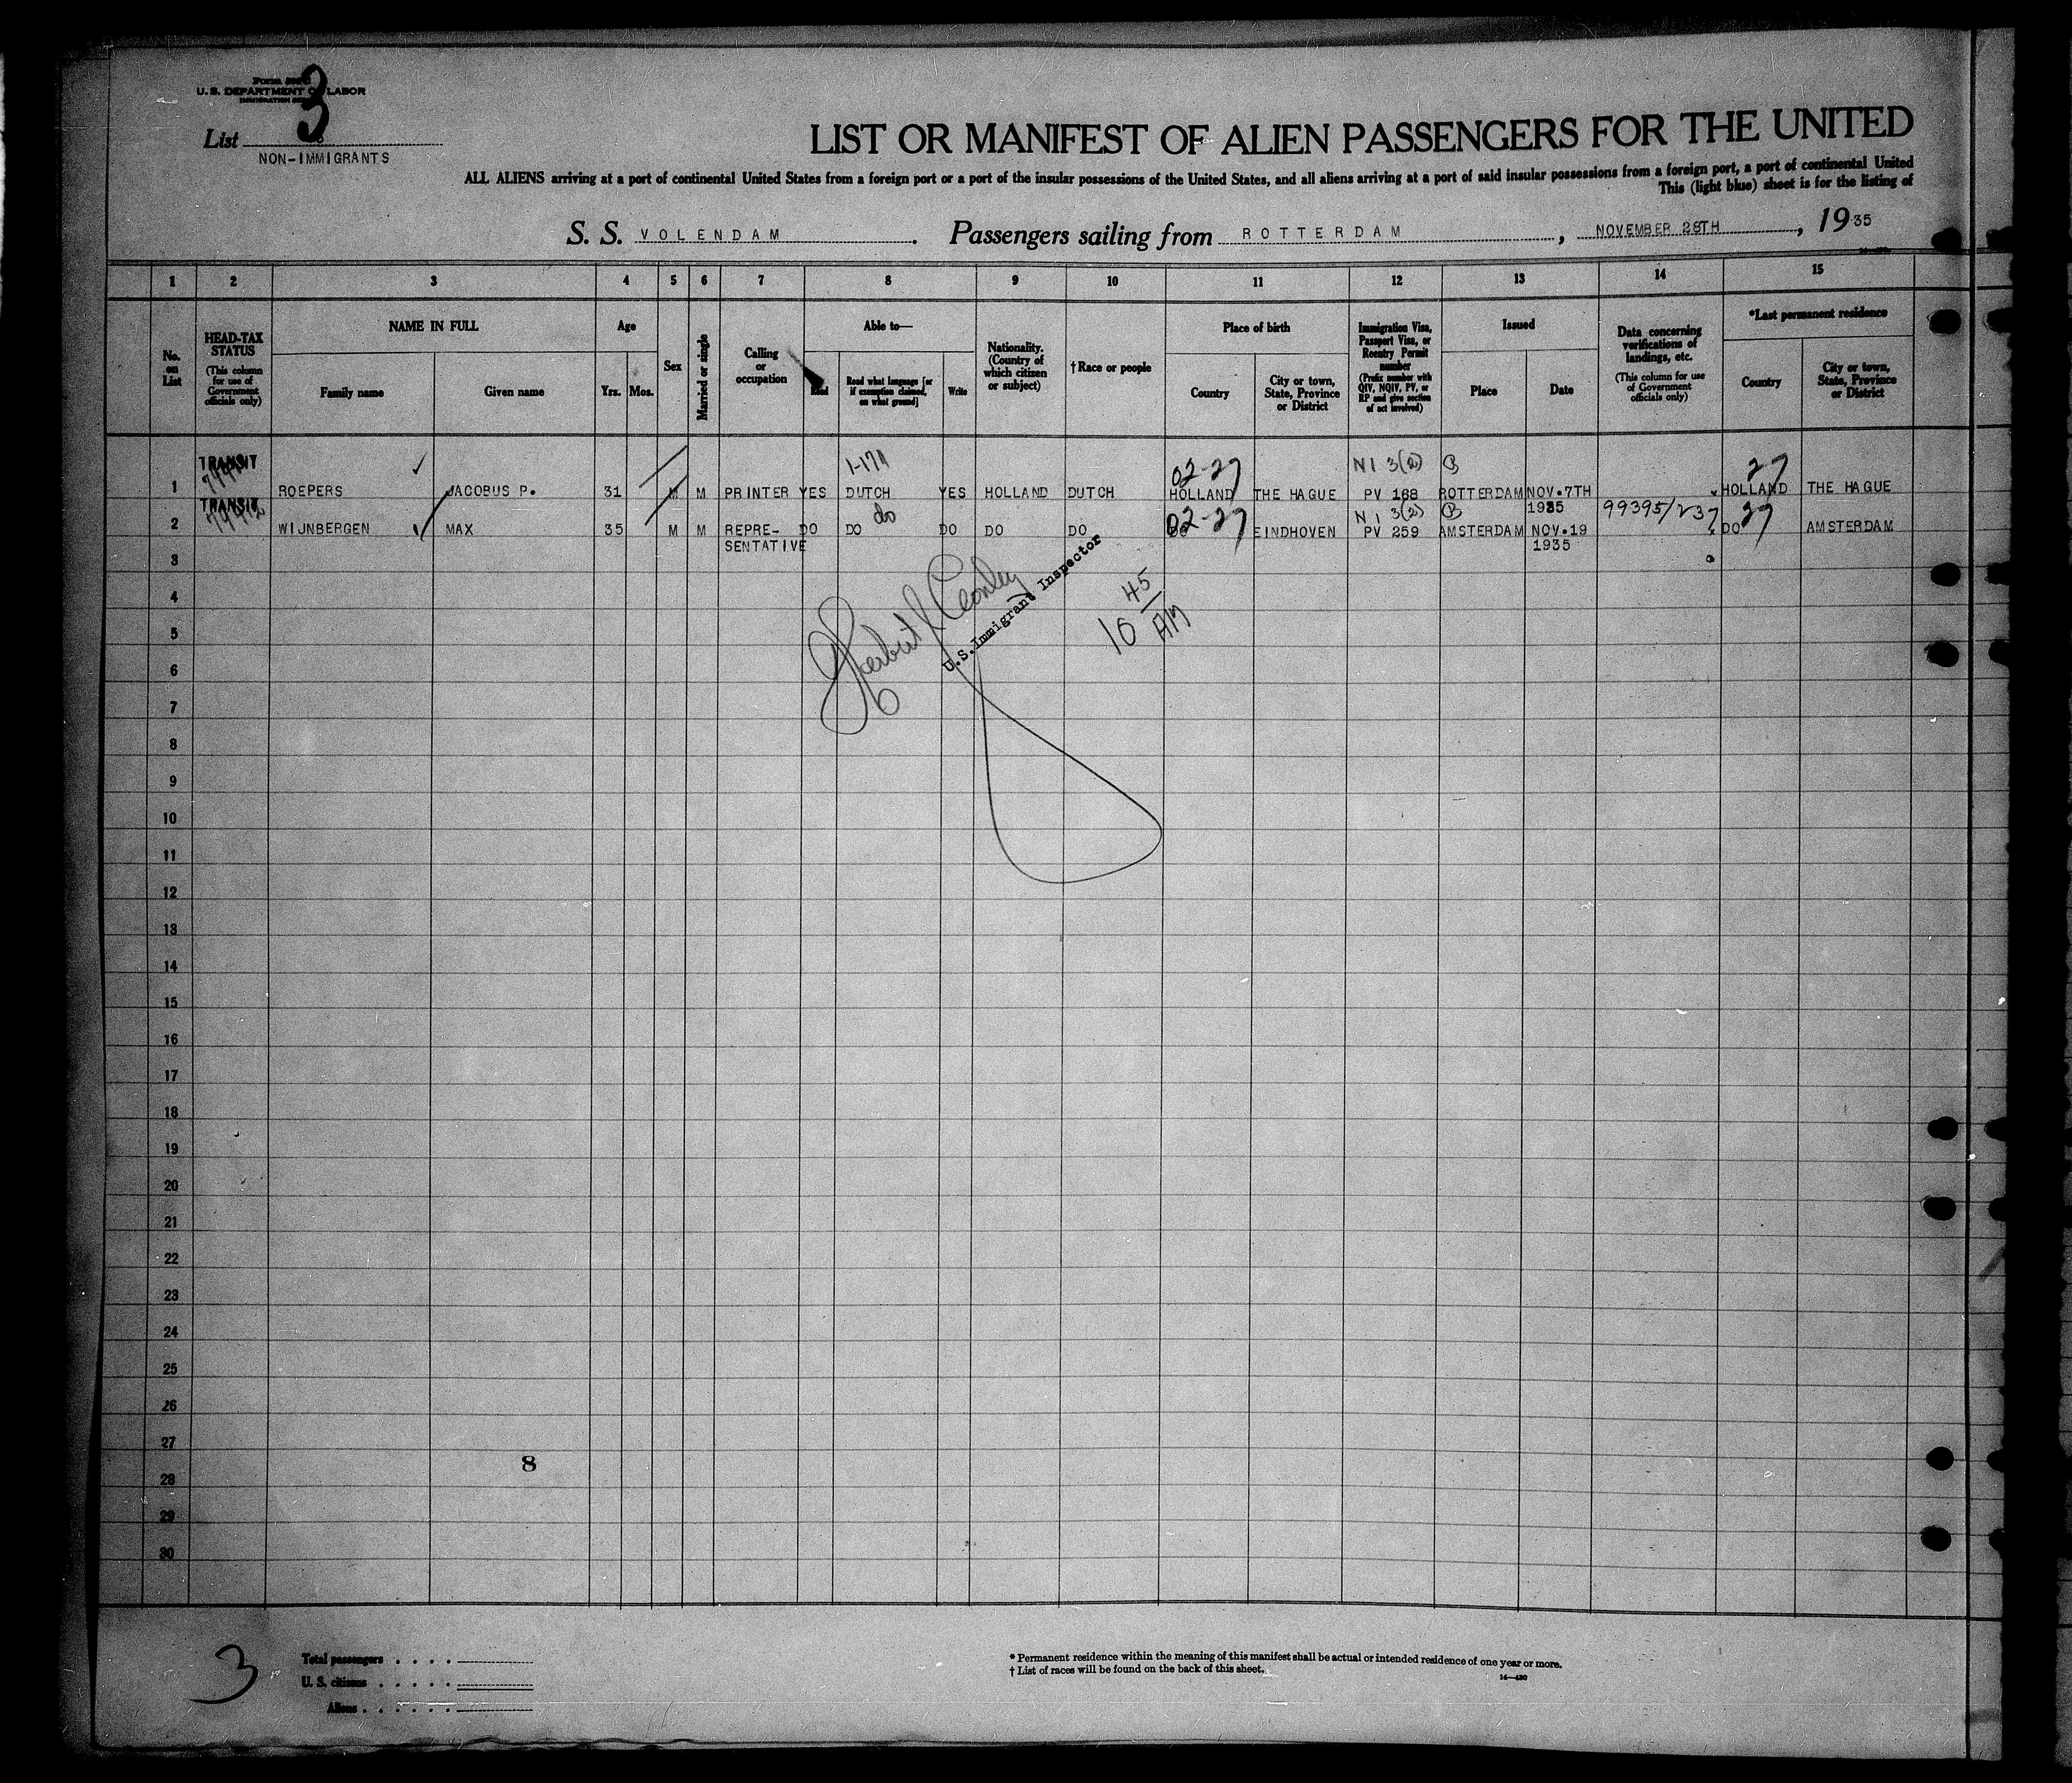 U. S. DEPARTMENT OF LABOR
List 3
NON-IMMIGRANTS
LIST OR MANIFEST OF ALIEN PASSENGERS FOR THE UNITED
ALL ALIENS arriving at a port of continental United States from a foreign port or a port of the insular possessions of the United States, and all aliens arriving at a port of said insular possessions from a foreign port, a port of continental United
This (light blue) sheet is for the listing of
S. S. VOLENDAM. Passengers sailing from ROTTERDAM, NOVEMBER 28TH, 1935
1 2 3 4 5 6 7 8 9 10 11 12 13 14 15
No. on List
HEAD-TAX STATUS
(This column for use of Government officials only)
NAME IN FULL
Family name
Given name
Age
Yrs.
Mos.
Sex
Married or single
Calling or occupation
Able to—
Read
Read what language [or if exemption claimed, on what ground]
Write
Nationality. (Country of which citizen or subject)
† Race or people
Place of birth
Country
City or town, State, Province or District
Immigration Visa, Passport Visa, or Reentry Permit number
(Prefix number with QIV, NQIV, PV, or RP and give section of act involved)
Issued
Place
Date
Data concerning verifications of landings, etc.
(This column for use of Government officials only)
*Last permanent residence
Country
City or town, State, Province or District
TRANSIT 1-171 02-27 NI 3(2) 27
1 ROEPERS JACOBUS P. 31 M M PRINTER YES DUTCH YES HOLLAND DUTCH HOLLAND THE HAGUE PV 168 ROTTERDAM NOV.7TH HOLLAND THE HAGUE
1935
TRANSIT do 02-27 NI 3(2) 99395/237 27
2 WIJNBERGEN MAX 35 M M REPRE- DO DO DO DO DO DO EINDHOVEN PV 259 AMSTERDAM NOV.19 DO AMSTERDAM
SENTATIVE 1935
3
U.S. Immigrant Inspector
10 45/AM
4
5
6
7
8
9
10
11
12
13
14
15
16
17
18
19
20
21
22
23
24
25
26
27
8
28
29
30
3
Total passengers
U. S. citizens
Aliens
* Permanent residence within the meaning of this manifest shall be actual or intended residence of one year or more.
† List of races will be found on the back of this sheet.
14—420